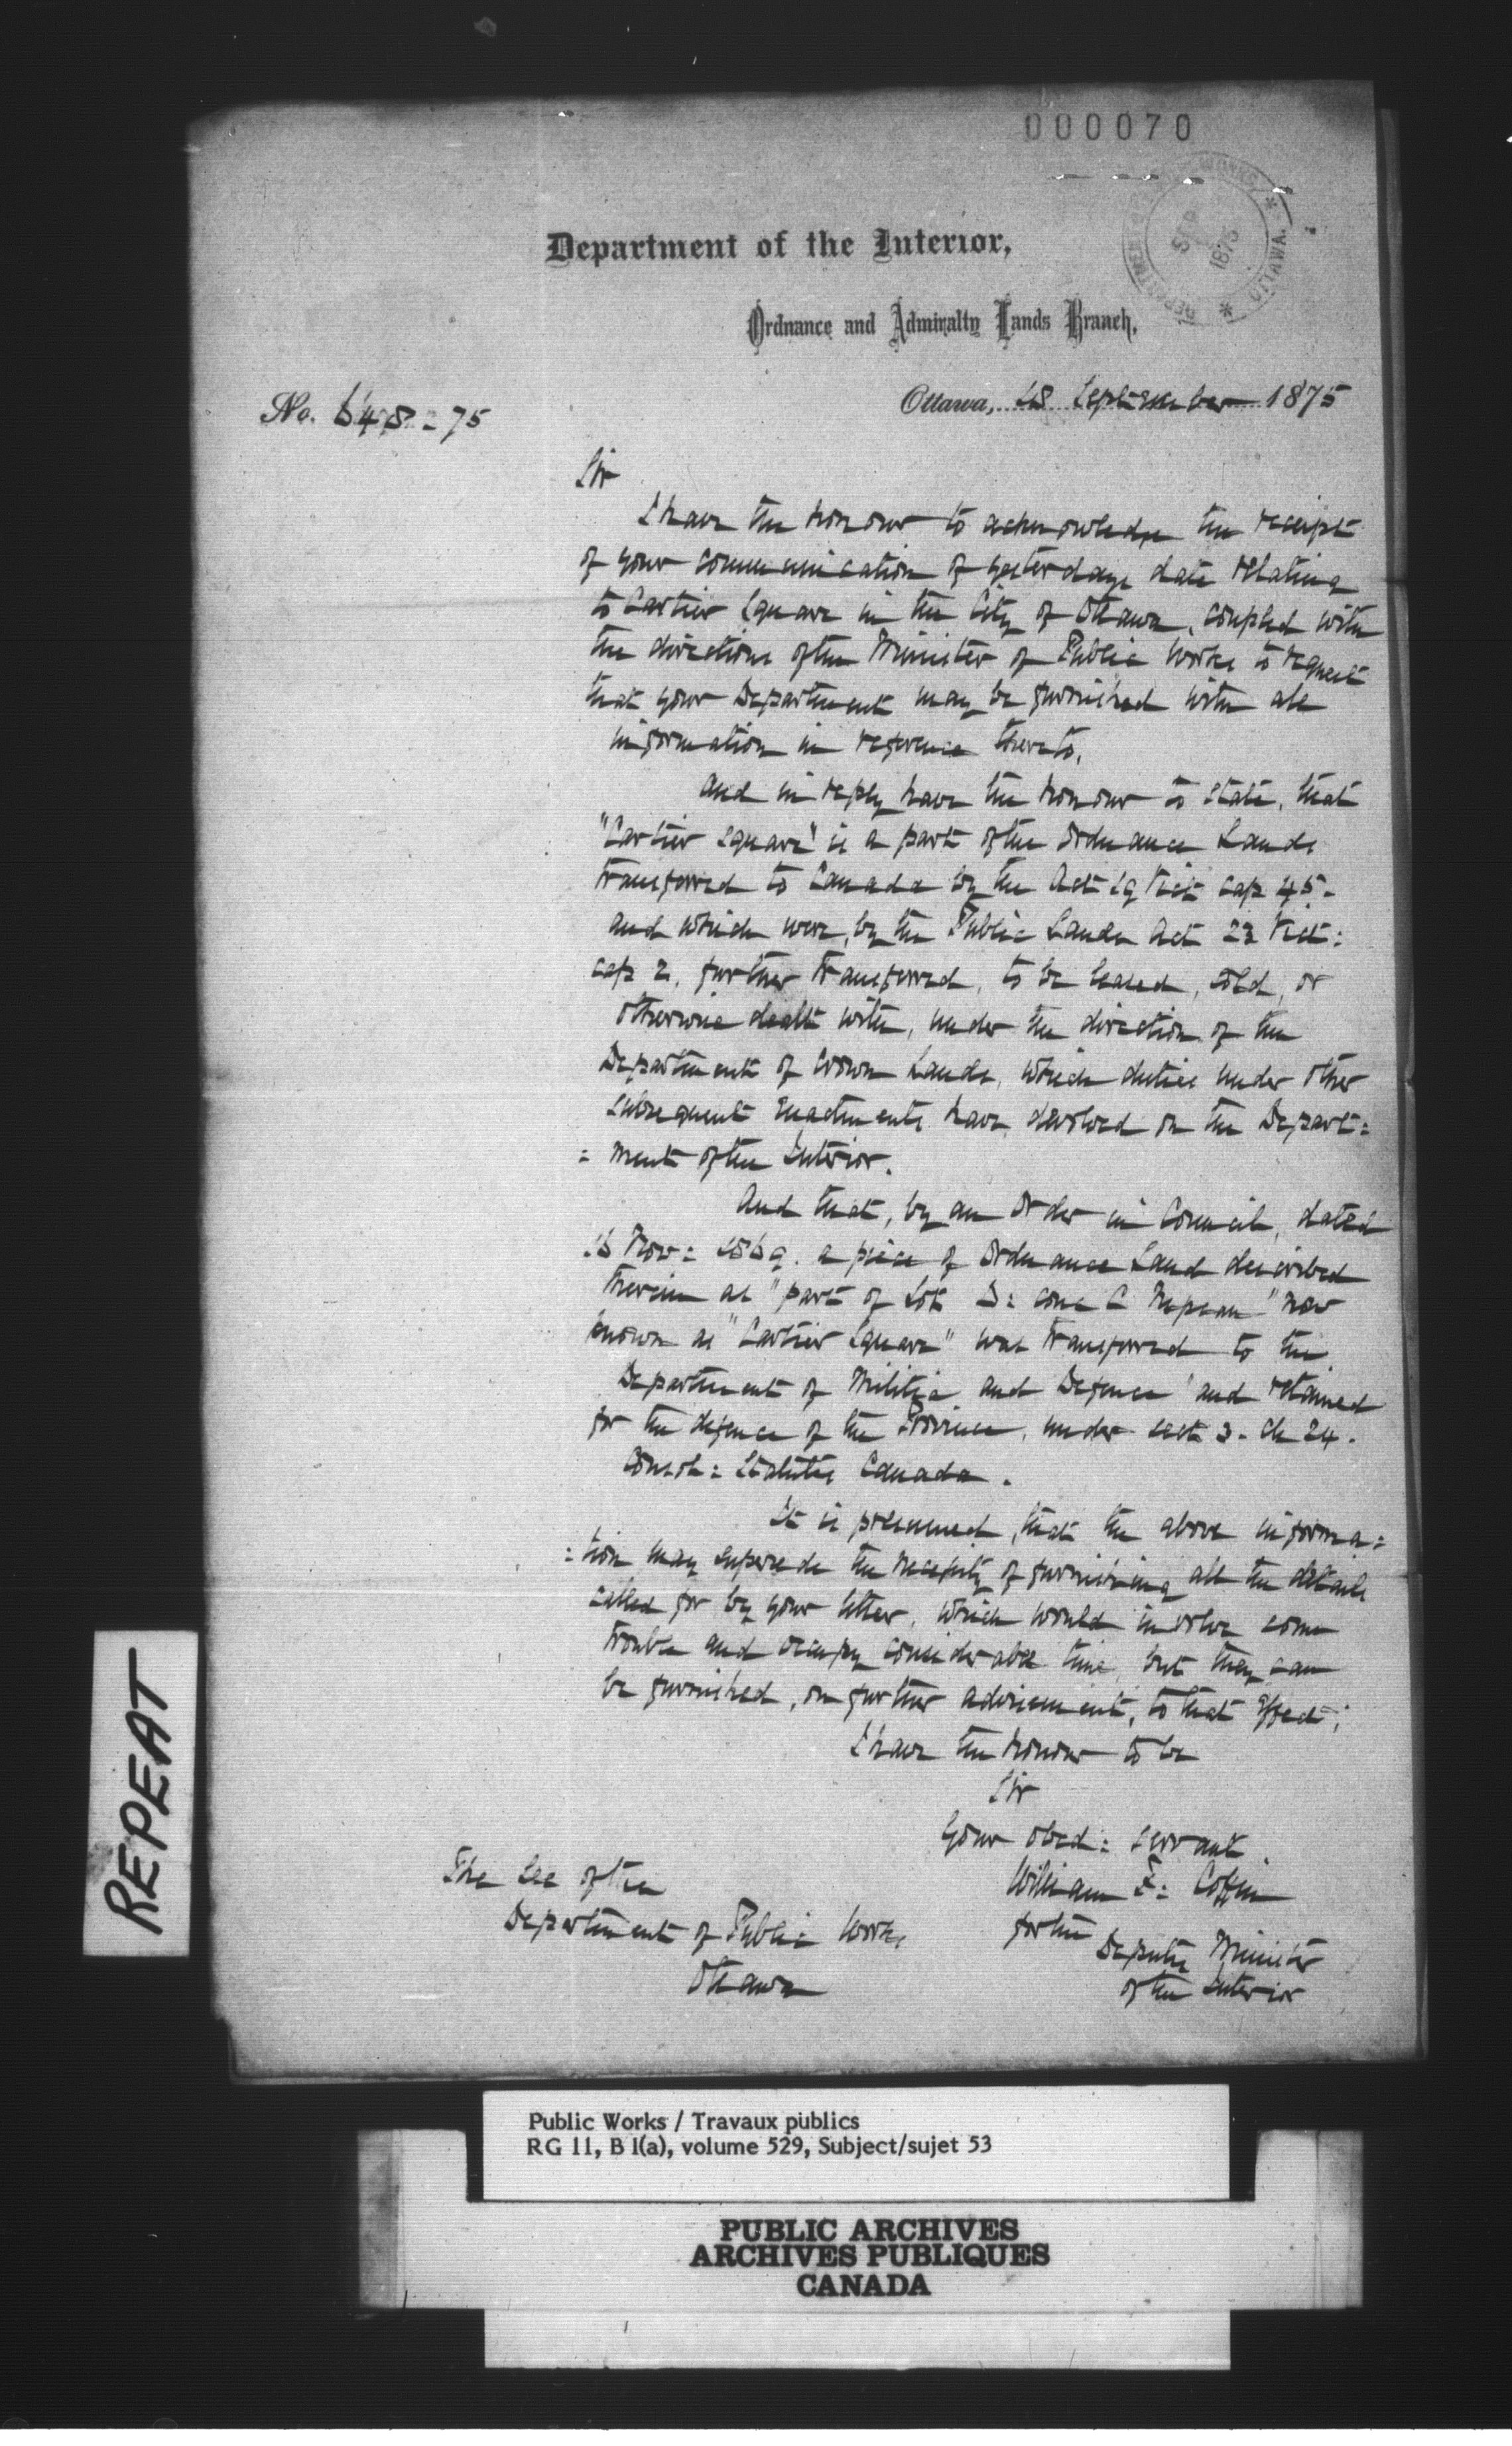 000070
DEPARTMENT OF PUBLIC WORKS * OTTAWA. *
SEP 1875
Department of the Interior,
Ordnance and Admiralty Lands Branch,
Ottawa, 18 September 1875
No. 648 - 75
Sir
I have the honour to acknowledge the receipt
of your communication of yesterdays date relating
to Cartier Square in the City of Ottawa, coupled with
the directions of the Minister of Public Works to request
that your Department may be furnished with all
information in reference thereto.
And in reply have the honour to state, that
"Cartier Square" is a part of the Ordnance Lands
transferred to Canada by the Act 19 Vict cap 45 -
and which were, by the Public Lands Act 23 Vict:
cap 2, further transferred, to be leased, sold, or
otherwise dealt with, under the direction of the
Department of Crown Lands, which duties under other
subsequent enactments have devolved on the Depart:
: ment of the Interior.
And that, by an Order in Council, dated
16 Nov: 1869. a piece of Ordnance Land described
therein as "part of Lot D: conc C Nepean" now
known as "Cartier Square" was transferred to the
Department of Militia and Defence 'and retained
for the defence of the Province, under sect 3 - Ch 24.
Consol: Statutes Canada.
It is presumed, that the above informa:
: tion may supersede the necessity of furnishing all the details
called for by your letter, which would involve some
trouble and occupy considerable time, but they can
be furnished, on further advisement, to that effect;
I have the honour to be
Sir
Your obed: servant
William F: Coffin
for the
Deputy Minister
of the Interior
The Sec of the
Department of Public Works
Ottawa
REPEAT
Public Works / Travaux publics
RG 11, B 1(a), volume 529, Subject/sujet 53
PUBLIC ARCHIVES
ARCHIVES PUBLIQUES
CANADA